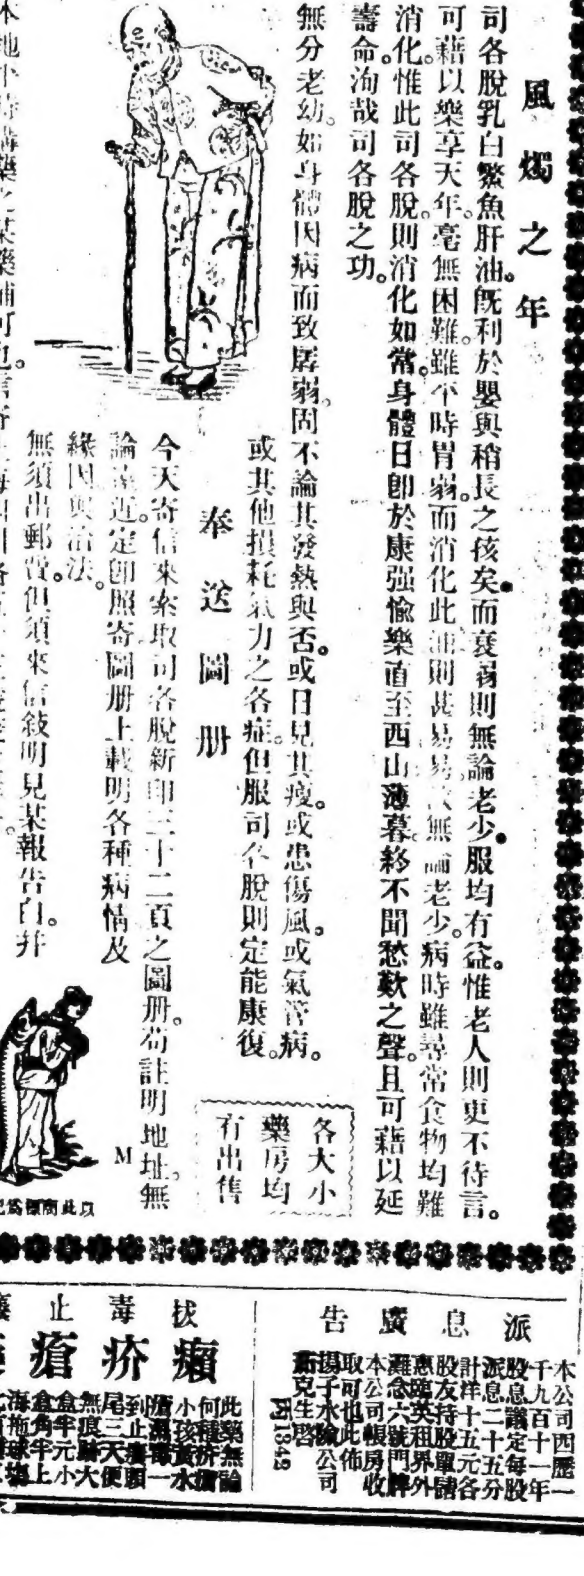 風燭之年
司各脫乳白鰵魚肝油。旣利於嬰與稍長之孩矣。而衰弱則無論老少。服均有益。惟老人則更不待言。
可藉以樂享天年。毫無困難。雖平時胃弱。而消化此油則甚易易。無論老少。病時雖尋常食物均難
消化。惟此司各脫。則消化如常。身體日卽於康强愉樂。直至西山薄暮。終不聞愁歎之聲。且可藉以延
壽命。洵哉司各脫之功。
無分老幼。如身體因病而致孱弱。固不論其發熱與否。或日見其瘦。或患傷風。或氣管病。
或其他損耗氣力之各症。但服司各脫則定能康復。
各大小
藥房均
有出售
奉送圖册
今天寄信來索取司各脫新印三十二頁之圖册。苟註明地址。無
論遠近。定卽照寄圖册上載明各種病情及
緣因與治法。
無須出郵費。但須來信敍明見某報告白。并
M
以此商標爲記
派息廣告
本公司西歷一
千九百十一年
股息議定每股
派息二十五分
計洋十五元各
股友持股單請
惠臨英租界外
灘念六號門牌
本公司帳房收
取可也此佈
揚子水險公司
克生啓
丙1343
拔毒止
癩疥瘡
此藥無論
何種疥瘡
小孩黃水
到止癢願
尾三天便
無痕跡大
盒半元小
盒角半上
海拋球場